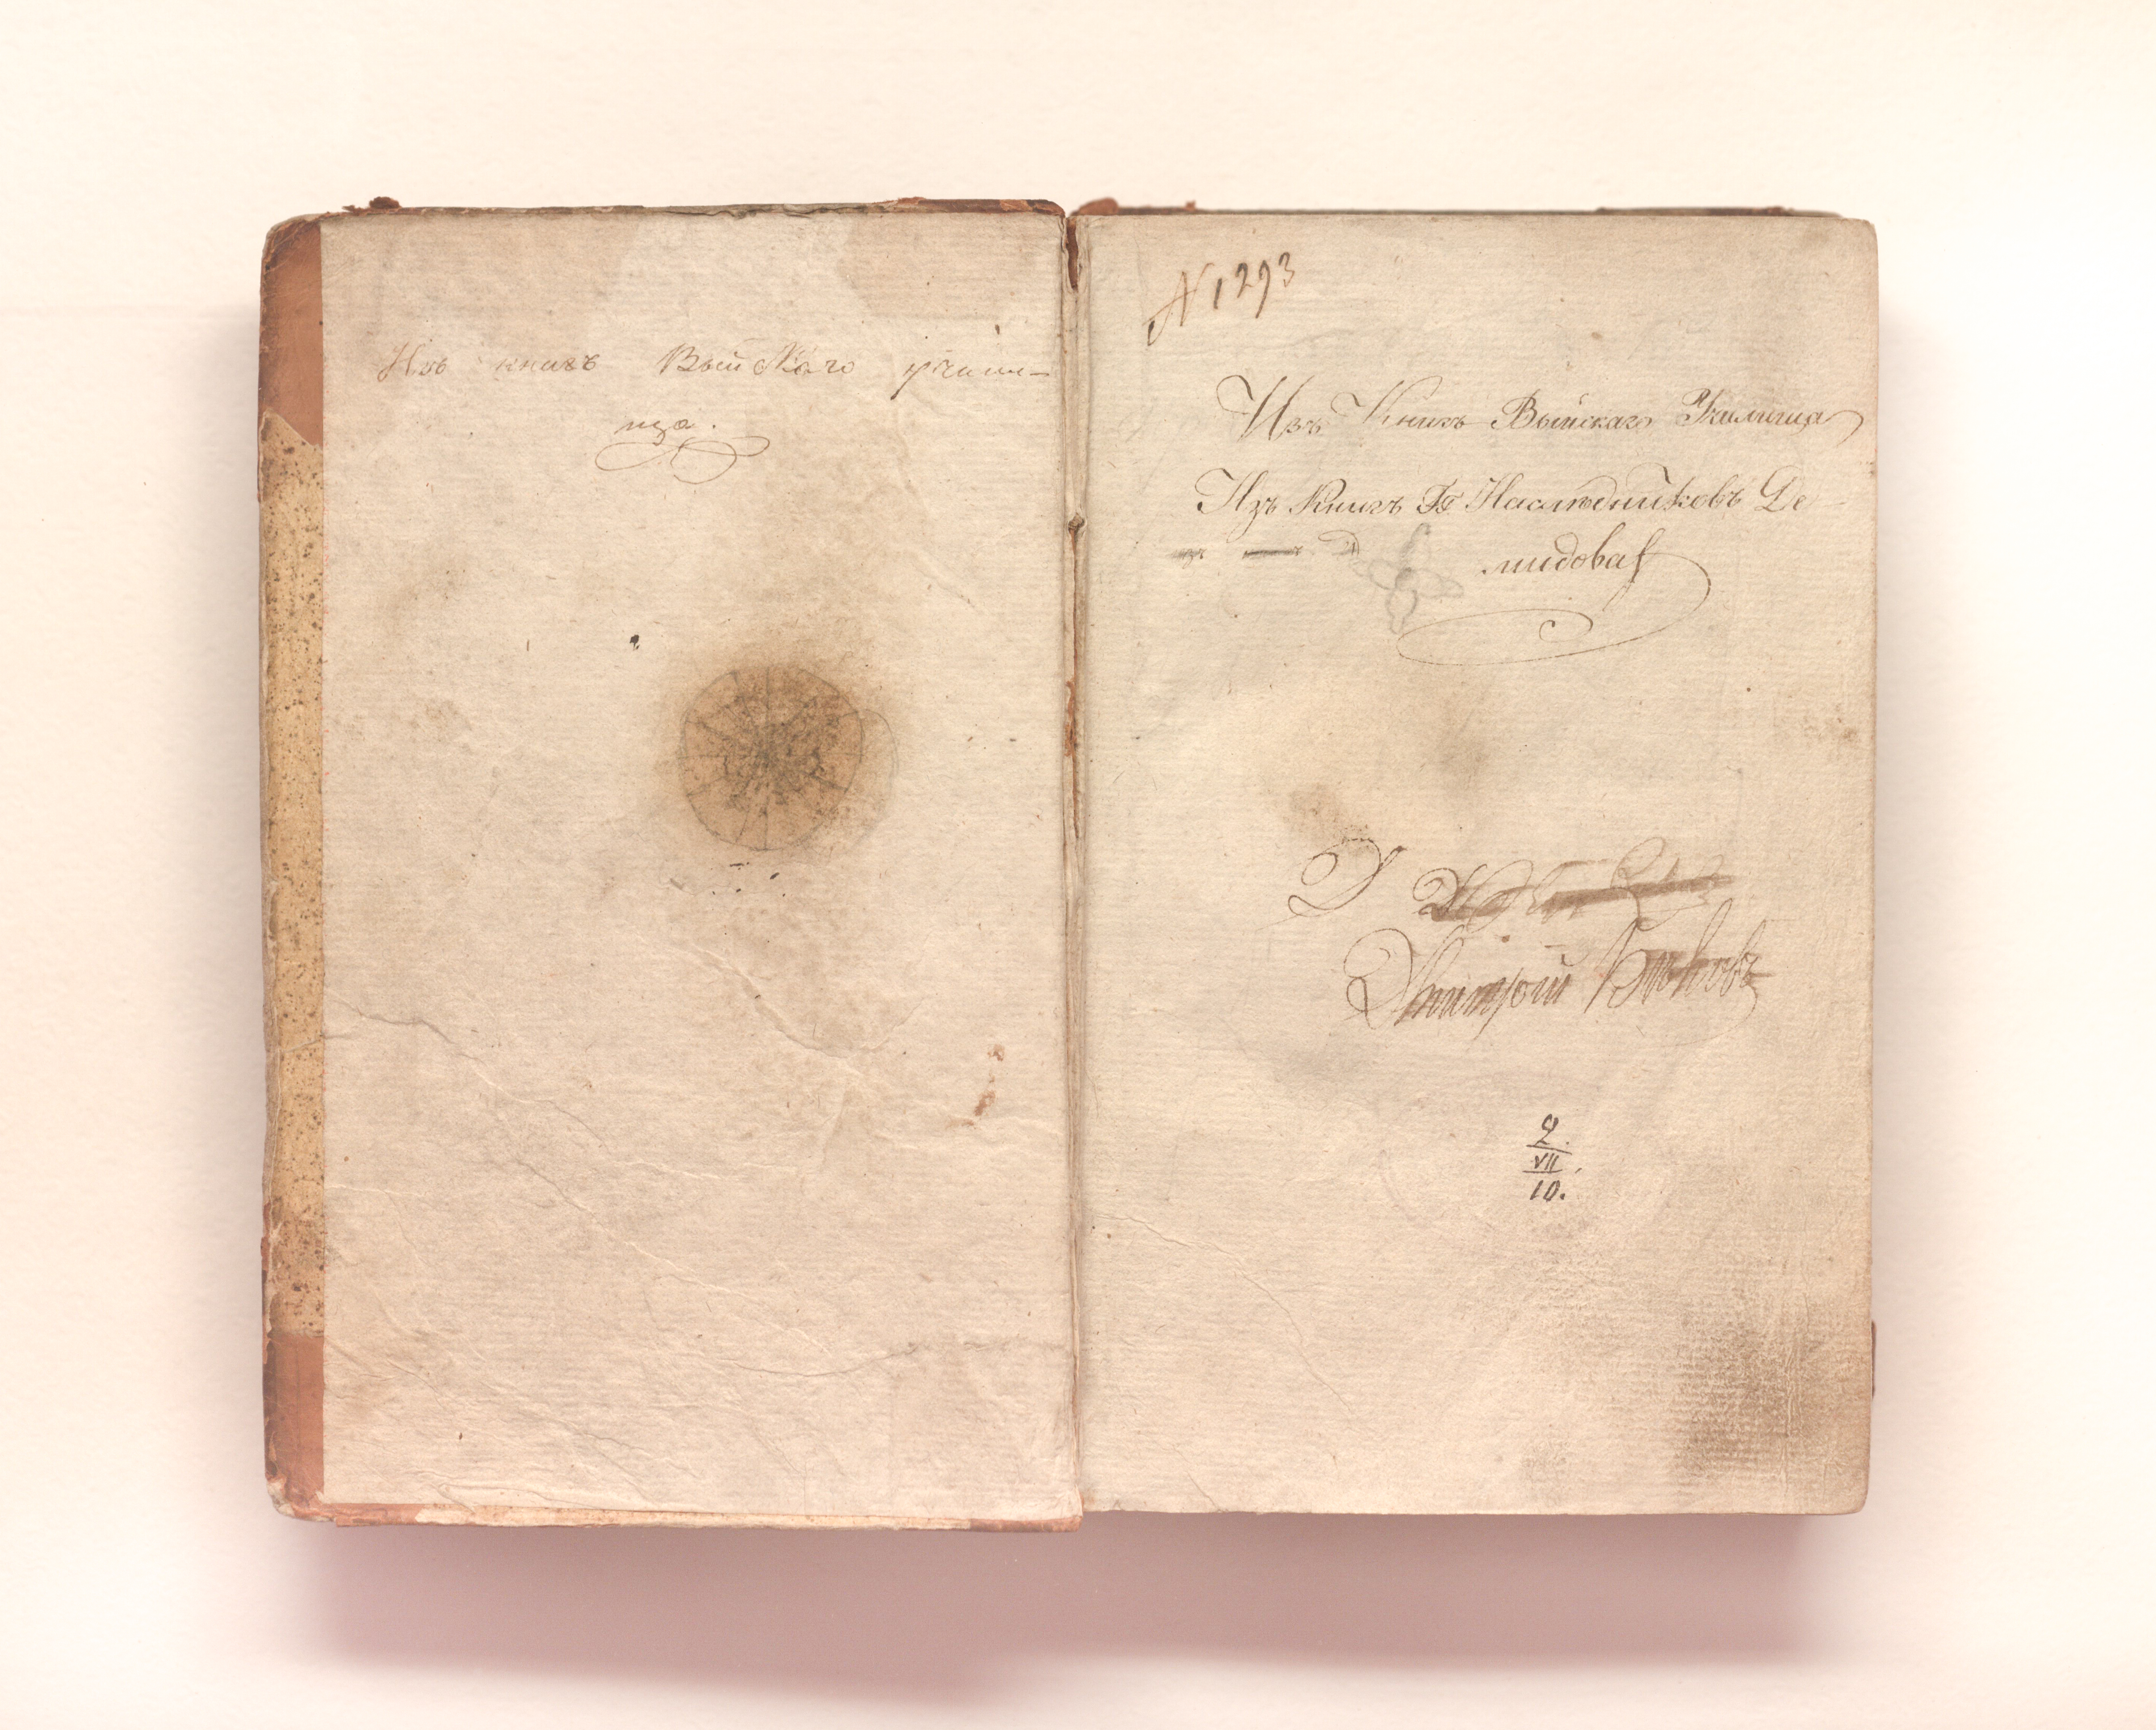 Изъ книгъ Выйскаго учили-
ща.
N 1293
Изъ Книгъ Выйскаго Училища
Изъ Книгъ ГГ Наслѣдниковъ Де-
мидова
Д
Дмитрій
2.
VII.
10.